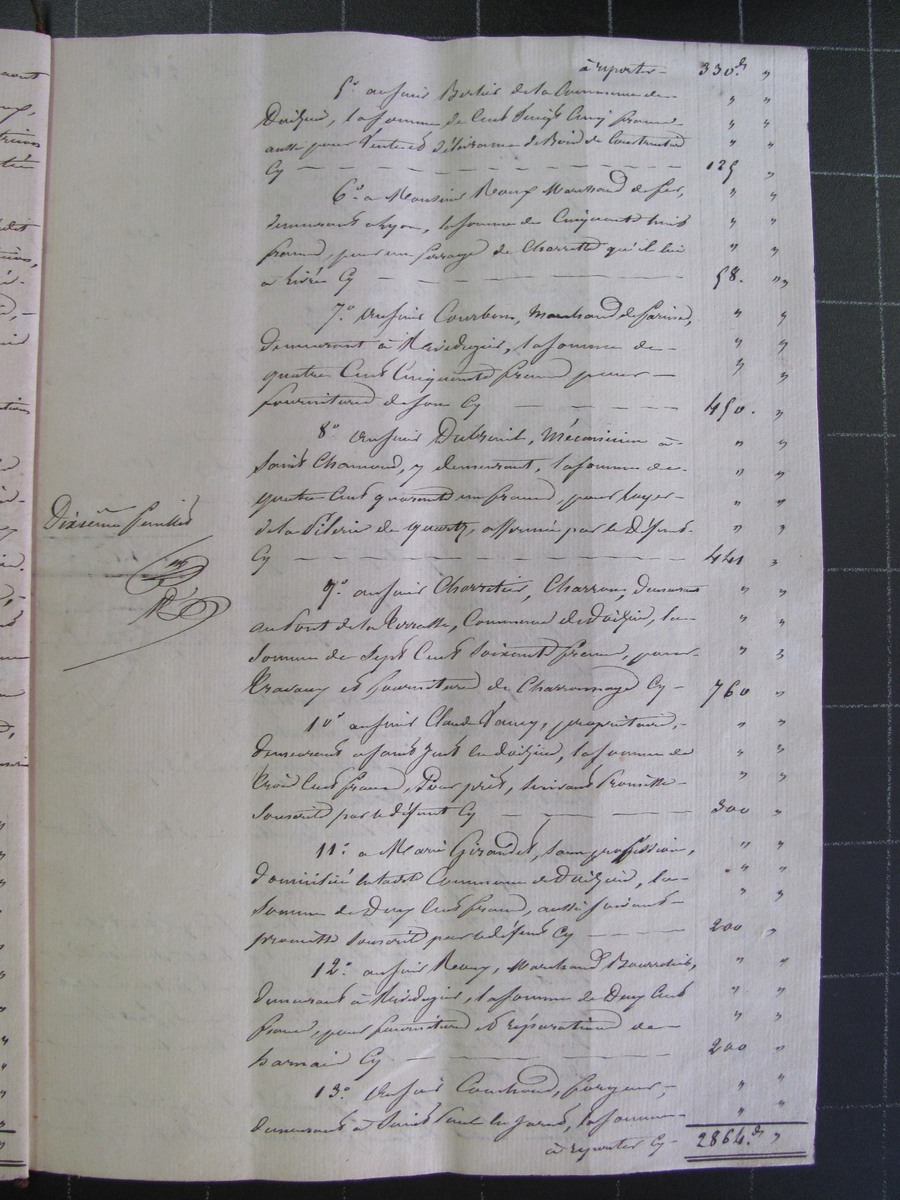 à reporter — 330.fs "
5.° au sieur Bertier de la Commune de
Doizieu, la somme de Cent vingt Cinq francs
aussi pour Vente et délivrance de Bois de Construction
Cy — 125 "
6.° a Monsieur Roux Marchand de fer,
demeurant à Lyon, la somme de Cinquante huit
francs, pour un ferrage de Charrette qu'il lui
a livrée Cy — 58. "
7.° Au sieur Courbon, Marchand de farine,
demeurant à Rivedegier, la somme de
quatre Cent Cinquante francs pour
fourniture de son Cy — 450. "
8.° Au sieur Dubreuil, Mécanicien à
Saint Chamond, y demeurant, la somme de
quatre Cent quarante un francs, pour loyer
de la Pilerie de quartz, affermée par le Défunt
Cy — 441 "
Dixième feuillet
9.° au sieur Charretier, Charron, Demeurant
au Pont de la Terrasse, Commune de Doizieu, la
Somme de Sept Cent Soixante francs, pour
travaux et fourniture de Charronnage Cy — 760 "
10.° au sieur Claude Vancy, propriétaire,
demeurant a Saint Just en doizieu, la somme de
trois Cent francs, Pour prêt, suivant Promesse
Souscrite par le défunt Cy — 300 "
11.° a Marie Giraudet, sans profession,
domiciliée en ladite Commune de Doizieu, la
Somme de Deux Cent francs, aussi suivant
promesse souscrite par le défunt Cy — 200 "
12.° au sieur Remy, Marchand Bourrelier,
demeurant à Rivedegier, la somme de Deux Cent
francs, pour fourniture et réparation de
harnais Cy — 200 "
13.° Au sieur Couchoud, forgeur,
demeurant à Saint Paul en Jarret, la somme
à reporter Cy — 2864.fs "